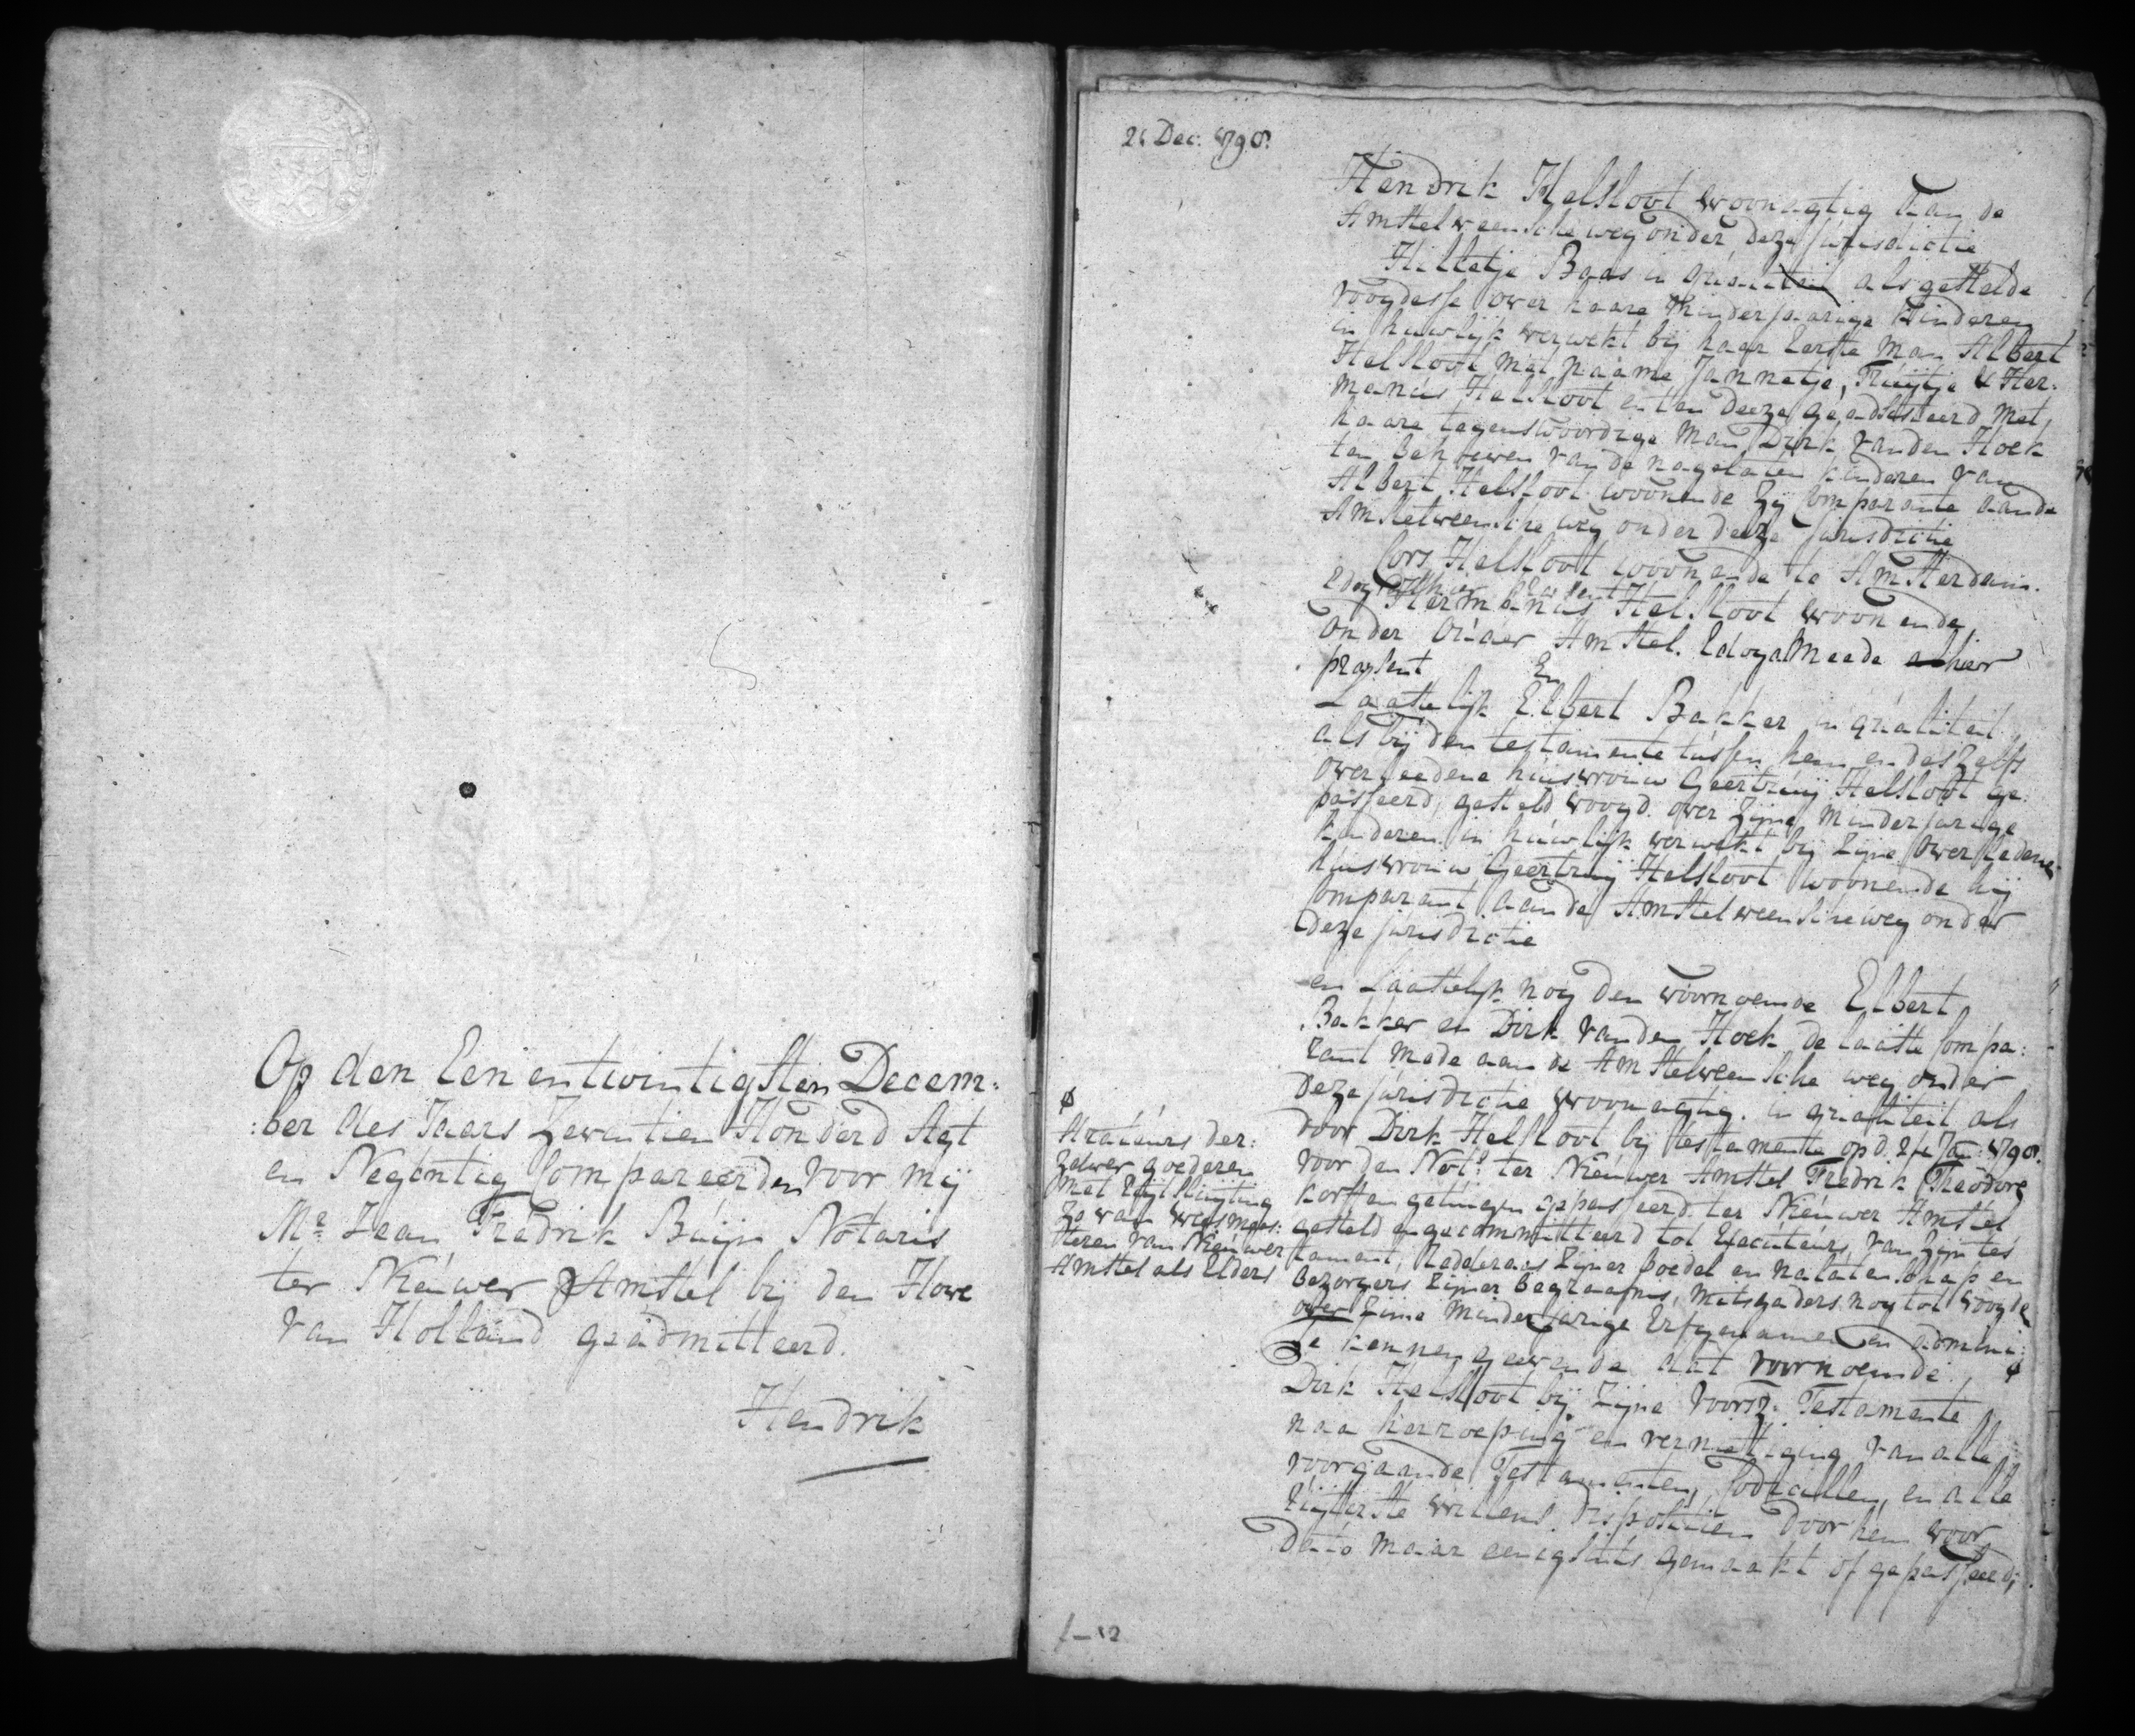 Op den Een en twintigsten Decem:
:ber des Jaars Zeventien Honderd Agt
en Negentig Compareerden voor mij
Mr. Jean Fredrik Buijn Notaris
ter Nieuwer Amstel bij den Hove
van Holland geadmitteerd.
Hendrik
21 Dec: 1798.
Hendrik Helsloot woonagtig aan de
Amstelveensche weg onder deze jurisdictie
Hilletje Baas in qualiteit als gestelde
voogdesse over haare minderjaarige kinderen
in huwlijk verwekt bij haar Eerste man Albert
Helsloot met naame Jannetje, Truijtje & Her:
manus Helsloot en ten deeze geadsisteerd met
haare tegenswoordige man Dirk van den Hoek
ten behoeven van de nagelaten kinderen van
Albert Helsloot woonende zij Comparante aan de
Amstelveensche weg onder deeze jurisdictie
Cors Helsloot woonende te Amsterdam.
Edog alhier present
Hermanus Helsloot woonende
onder Ouder Amstel. Edog almeede alhier
present
En
Laatelijk Elbert Bakker in qualiteit
als bij den testamente tussen hem en deszelfs
overleedene huisvrouw Geertruij Helsloot ge:
passeerd, gesteld voogd over zijne minderjarige
kinderen in huwlijk verwekt bij zijne overledene
huisvrouw Geertruij Helsloot woonende hij
Comparant aan de Amstelveensche weg onder
deze jurisdictie
en Laatelijk nog den voornoemde Elbert
Bakker en Dirk van den Hoek de laatste Compa:
rant mede aan de Amstelveensche weg onder
deze jurisdictie woonagtig. in qualiteit als
door Dirk Helsloot bij testamente op d. Jan: 1798.
voor den Nots. ter Nieuwer Amstel Fredrik Theodore
Korff en getuigen gepasseerd. ter Nieuwer Amstel
gesteld en gecommitteerd tot Executeurs, van zijn tes
tament, Redderaars zijner boedel en nalatenschap en
bezorgers zijner begraafnis, mitsgaders nog tot voogde
over zijne minderjarige Erfgenamen en admini:
strateurs der:
zelver goederen
met uijtsluijting
zo van weesmees:
steren van Nieuwer
Amstel als Elders
Te kennen geevende dat voornoemde
Dirk Helsloot bij zijne voorsz: Testamente
naa herroeping en vernietiging van alle
voorgaande Testamenten, Codicillen, en alle
uijterste willens dispositien door hem voor
dato maar eenigsints gemaakt of gepasseerd,
f–12